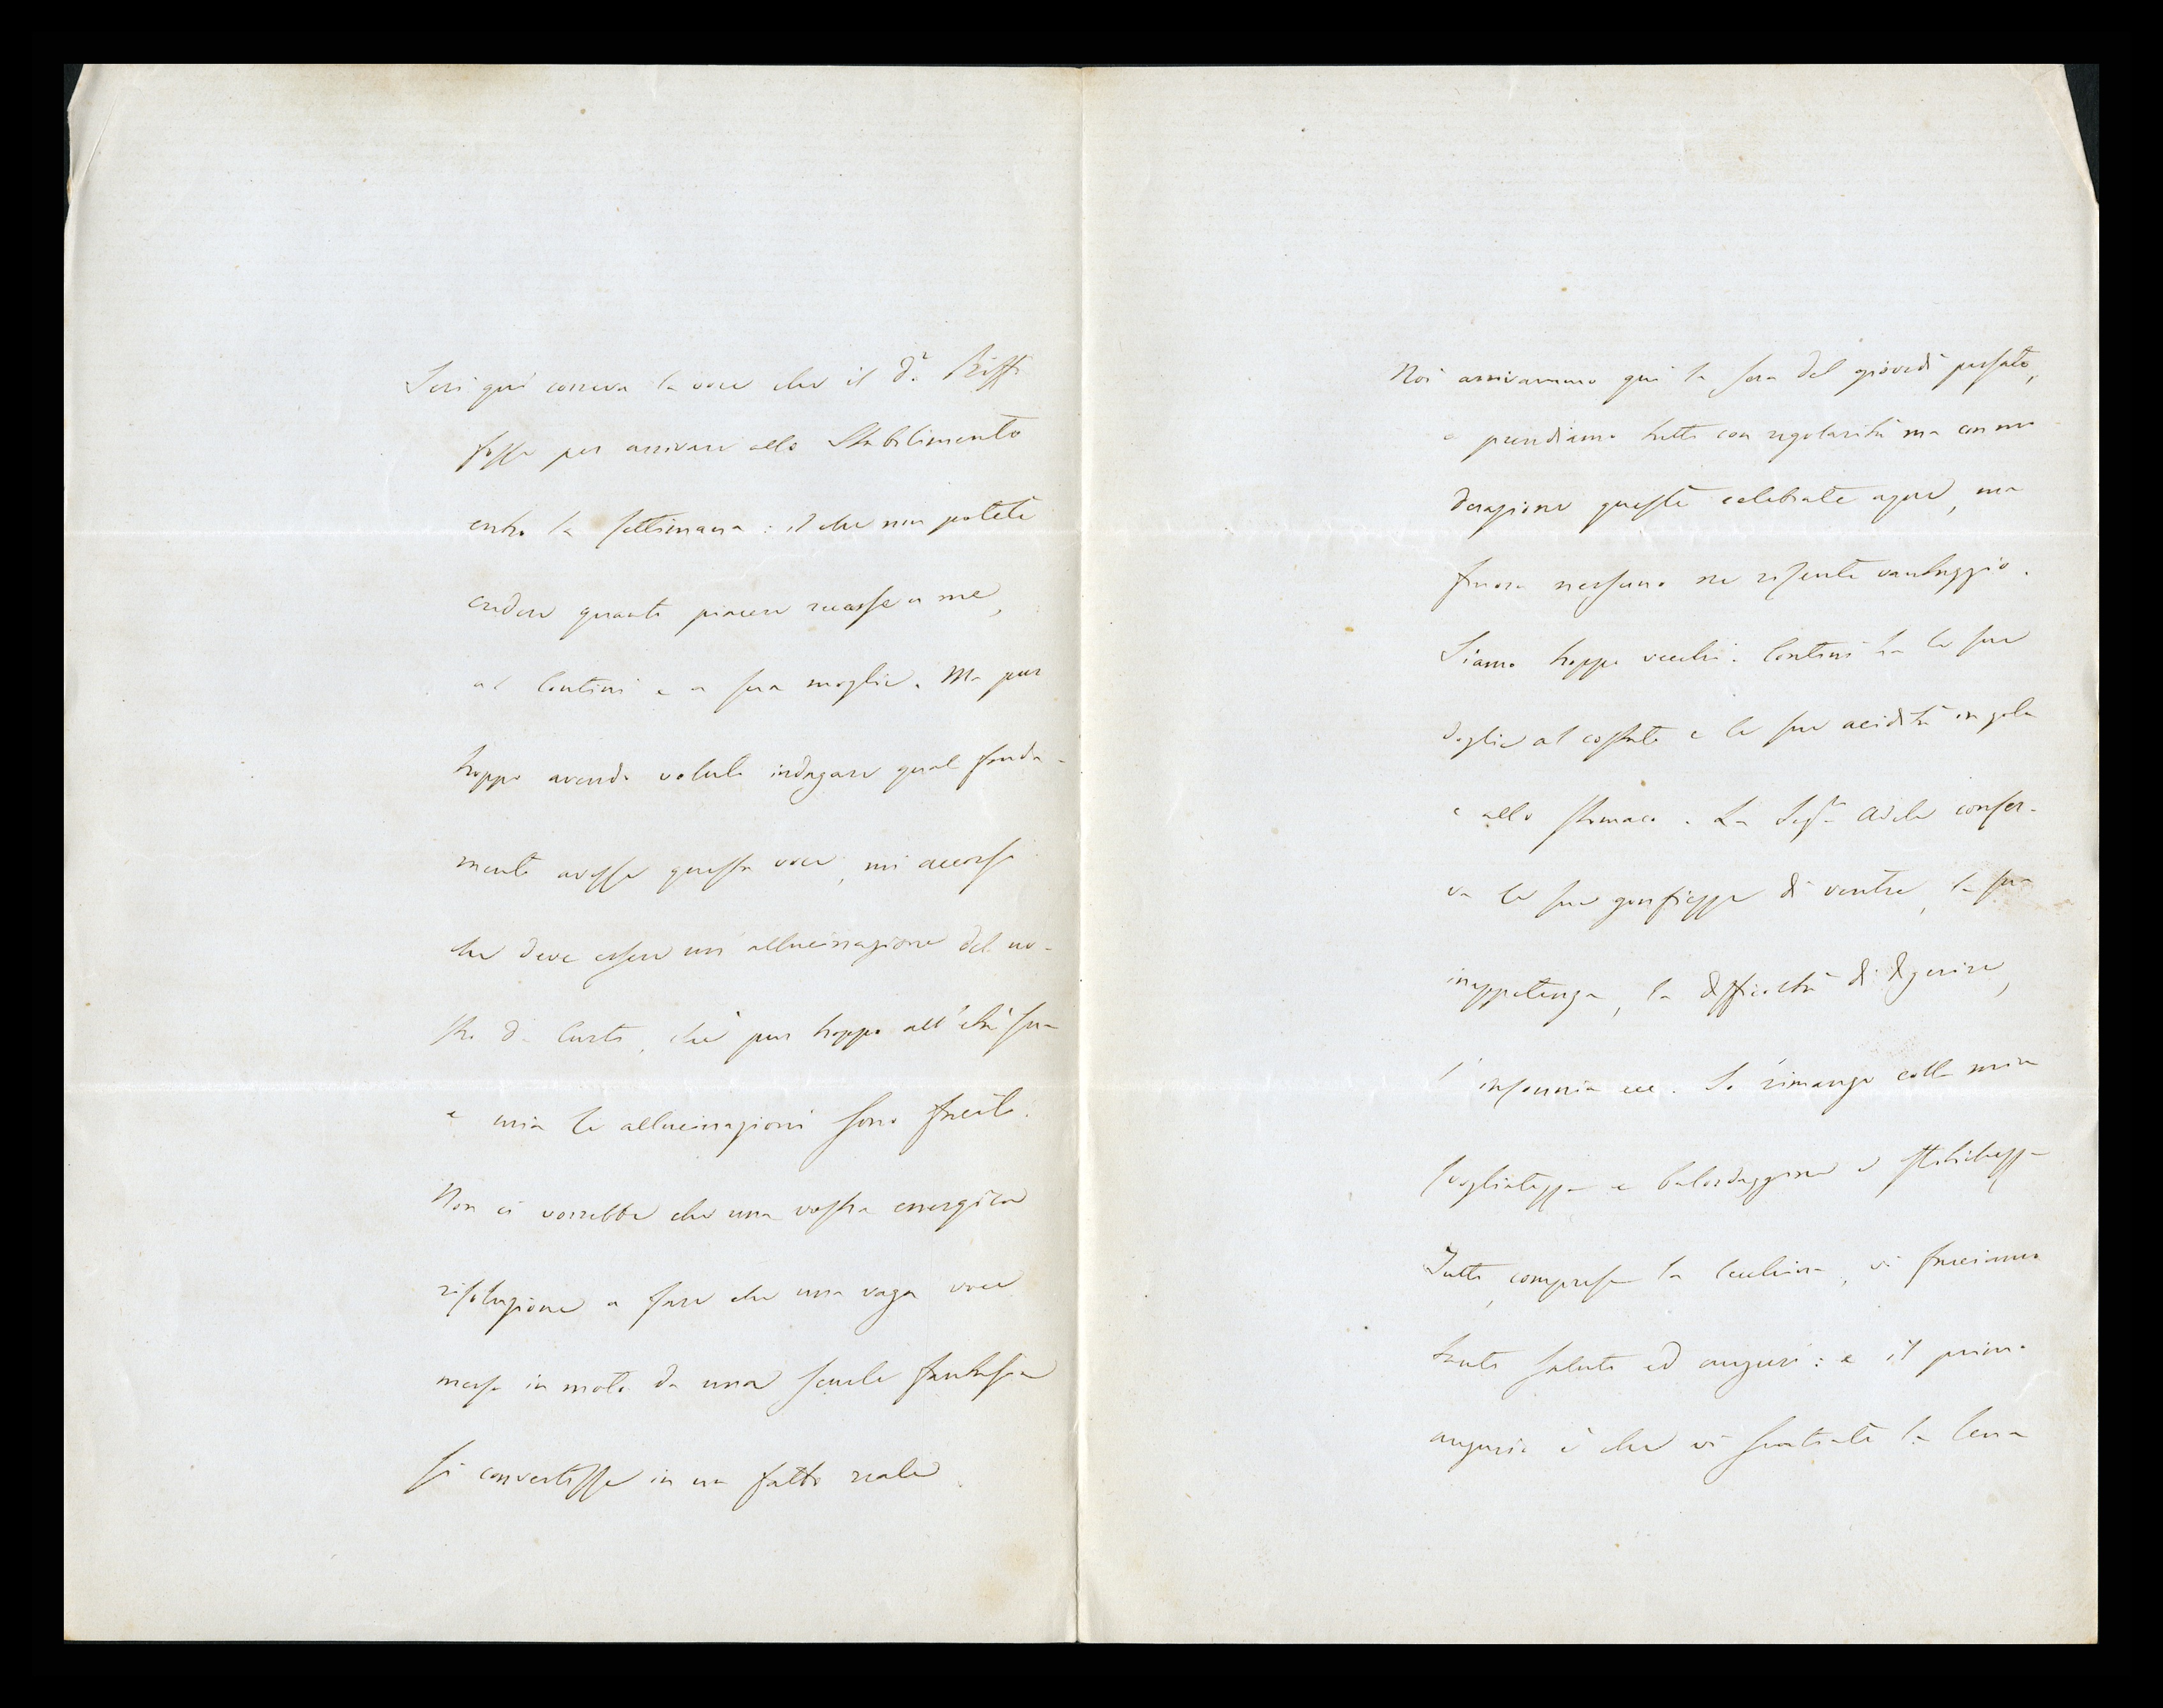 Ieri qui correva la voce che il Dr. Biffi
fosse per arrivare allo Stabilimento
entro la settimana: il che non potete
credere quanto piacere recasse a me,
al Contini e a sua moglie. Ma pur
troppo avendo voluto indagare qual fonda-
mento avesse questa voce, mi accorsi
che deve essere un'allucinazione del no-
stro Dr Curti, chè pur troppo all'età sua
e mia le allucinazioni sono facili.
Non ci vorrebbe che una vostra energica
risoluzione a fare che una vaga voce
messa in moto da una senile fantasia
si convertisse in un fatto reale.
Noi arrivammo qui la sera del giovedì passato,
e prendiamo tutti con regolarità ma con mo
derazione queste celebrate acque, ma
finora nessuno ne risente vantaggio.
Siamo troppo vecchi. Contini ha le sue
doglie al costato e le sue acidità in gola
e allo stomaco. La Sigra Adele conser-
va le sue gonfiezze di ventre, la sua
inappetenza, la difficoltà di digerire,
l'insonnia ecc. Io rimango colla mia
svogliatezza e balordaggine e stitichezza
Tutti, compresa la Cecchina, vi facciamo
tanti saluti ed auguri: e il primo
augurio è che vi sentiate la lena